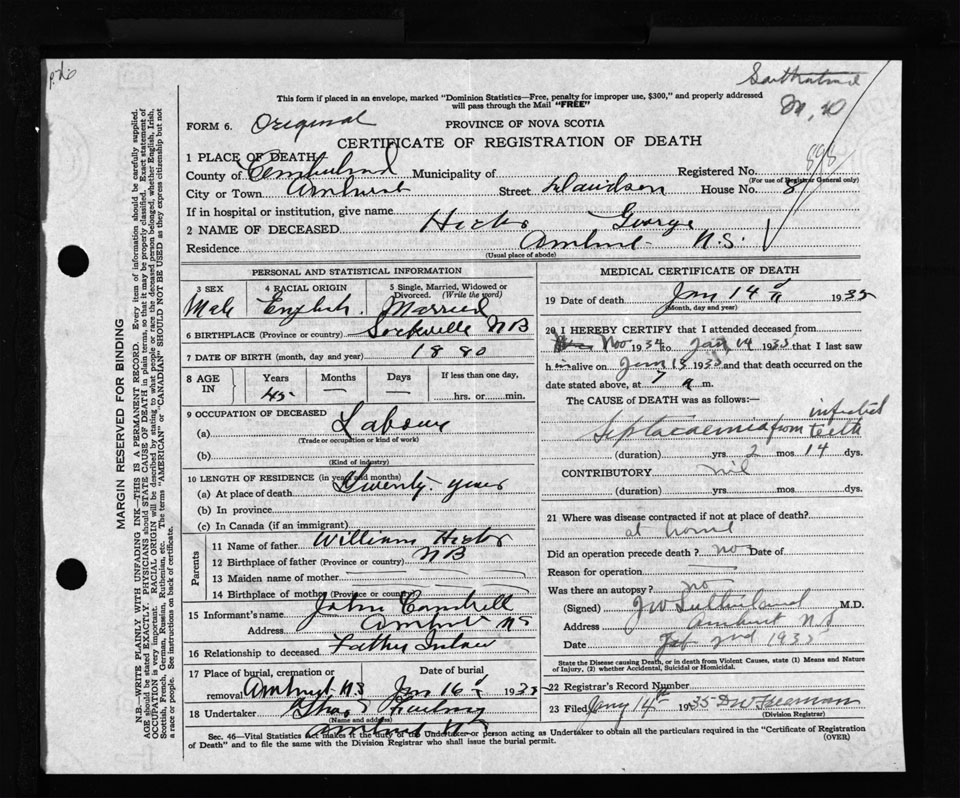 This form if placed in an envelope, marked "Dominion Statistics—Free, penalty for improper use, $300," and properly addressed
will pass through the Mail "FREE"
FORM 6. Original PROVINCE OF NOVA SCOTIA
CERTIFICATE OF REGISTRATION OF DEATH
1 PLACE OF DEATH
County of Cumberland Municipality of Registered No. 898
(For use of Registrar General only)
City or Town Amherst Street Davidson House No. 8
If in hospital or institution, give name
2 NAME OF DECEASED Hector George
Residence Amherst N.S.
(Usual place of abode)
PERSONAL AND STATISTICAL INFORMATION
3 SEX 4 RACIAL ORIGIN 5 Single, Married, Widowed or Divorced. (Write the word)
Male English. Married
6 BIRTHPLACE (Province or country) Sackville NB
7 DATE OF BIRTH (month, day and year) 1880
8 AGE IN Years Months Days If less than one day,
45 — — hrs. or min.
9 OCCUPATION OF DECEASED
(a) Labour
(Trade or occupation or kind of work)
(b)
(Kind of industry)
10 LENGTH OF RESIDENCE (in years and months)
(a) At place of death Twenty years
(b) In province
(c) In Canada (if an immigrant)
Parents
11 Name of father William Hector
12 Birthplace of father (Province or country) NB
13 Maiden name of mother
14 Birthplace of mother (Province or country)
15 Informant's name John
Address Amherst NS
16 Relationship to deceased Father Inlaw
17 Place of burial, cremation or removal Amherst NS Date of burial Jan 16 1935
18 Undertaker
(Name and address)
Amherst NS
MEDICAL CERTIFICATE OF DEATH
19 Date of death Jan 14 1935
(Month, day and year)
20 I HEREBY CERTIFY that I attended deceased from
Nov 1934 to Jan 14 1935 that I last saw
him alive on Jan 13 1935 and that death occurred on the
date stated above, at 7 a m.
The CAUSE OF DEATH was as follows:—
Septacaemia from infected teeth
(duration) yrs. 2 mos. 14 dys.
CONTRIBUTORY nil
(duration) yrs. mos. dys.
21 Where was disease contracted if not at place of death?
at home
Did an operation precede death? no Date of
Reason for operation
Was there an autopsy? no
(Signed) JW Sutherland M.D.
Address Amherst NS
Date Feb 2nd 1935
State the Disease causing Death, or in death from Violent Causes, state (1) Means and Nature
of Injury, (2) whether Accidental, Suicidal or Homicidal.
22 Registrar's Record Number
23 Filed Jany 14th 1935 DW Freeman
(Division Registrar)
Sec. 46—Vital Statistics makes it the duty of the Undertaker or person acting as Undertaker to obtain all the particulars required in the "Certificate of Registration
of Death" and to file the same with the Division Registrar who shall issue the burial permit. (OVER)
MARGIN RESERVED FOR BINDING
N.B.—WRITE PLAINLY WITH UNFADING INK—THIS IS A PERMANENT RECORD. Every item of information should be carefully supplied.
AGE should be stated EXACTLY. PHYSICIANS should STATE CAUSE OF DEATH in plain terms, so that it may be properly classified. Exact statement of
OCCUPATION is very important. RACIAL ORIGIN will be described by stating to what people or race the deceased person belonged, whether English, Irish,
Scottish, French, German, Russian, Ruthenian, etc. The terms "AMERICAN" or "CANADIAN" SHOULD NOT BE USED as they express citizenship but not
a race or people. See instructions on back of certificate.